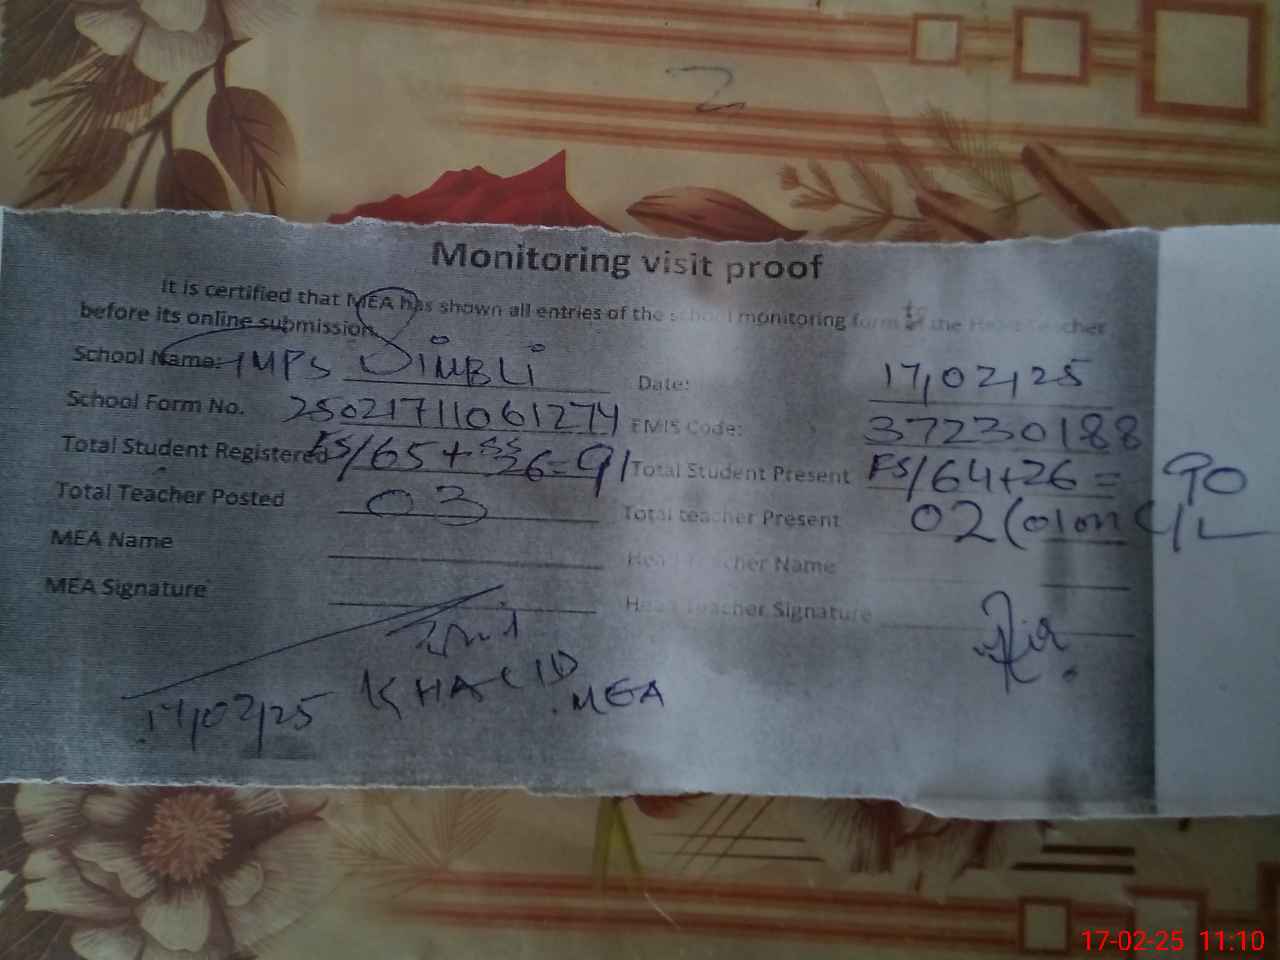 2
Monitoring visit proof
It is certified that MEA has shown all entries of the school monitoring form to the Head Teacher
before its online submission.
School Name: GMPS DiMBLi Date: 17,02,25
School Form No. 25021711061274 EMIS Code: 37230188
Total Student Registered ES/65+ SS 26=91 Total Student Present ES/64+26= 90
Total Teacher Posted 03 Total teacher Present 02 (01 on C/L
MEA Name Head Teacher Name
MEA Signature Head Teacher Signature
KHALID
MEA
17,02,25
17-02-25 11:10